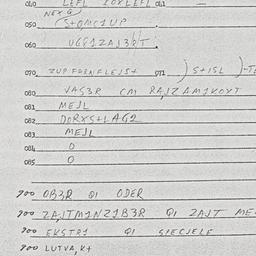 040 LEFL IOXLEFL 041 —
NEXG
050 (S+OMC1UP
060 UGE1ZAJ3RT
070 ZUPFORNFLEJS+ 071 )S+ISL )-T
080 VAS3R CM RAJZAM1KOYT
081 MEJL
082 DORXS+LAG2
083 MEJL
084 0
085 0
900 OB3R QI ODER
900 ZAJTM1NZ1B3R QI ZAJT ME
900 EKSTR1 QI SIECJELE
900 LUTVA,K+